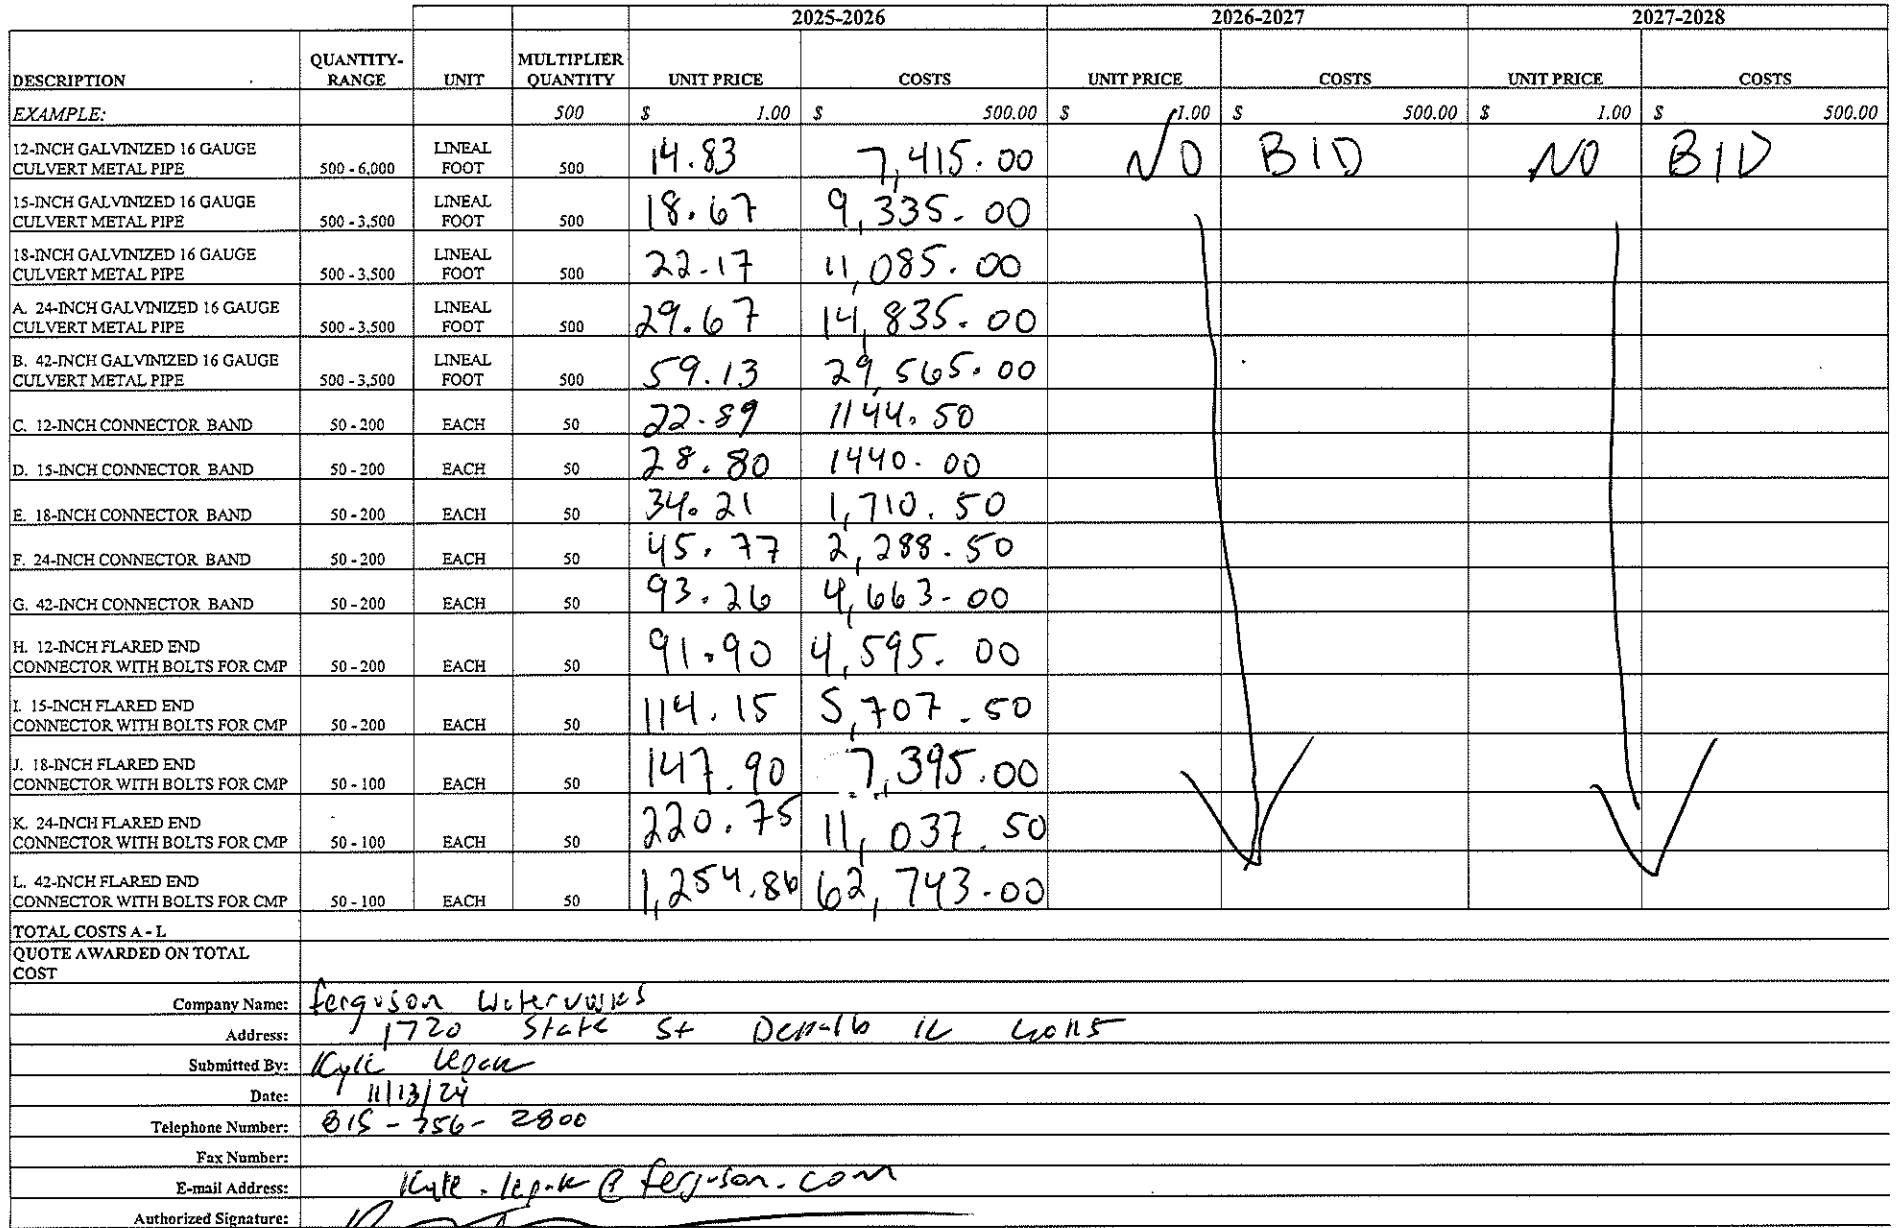 2025-2026 2026-2027 2027-2028
DESCRIPTION QUANTITY-RANGE UNIT MULTIPLIER QUANTITY UNIT PRICE COSTS UNIT PRICE COSTS UNIT PRICE COSTS
EXAMPLE: 500 $ 1.00 $ 500.00 $ 1.00 $ 500.00 $ 1.00 $ 500.00
12-INCH GALVINIZED 16 GAUGE CULVERT METAL PIPE 500 - 6,000 LINEAL FOOT 500 14.83 7,415.00 NO BID NO BID
15-INCH GALVINIZED 16 GAUGE CULVERT METAL PIPE 500 - 3,500 LINEAL FOOT 500 18.67 9,335.00
18-INCH GALVINIZED 16 GAUGE CULVERT METAL PIPE 500 - 3,500 LINEAL FOOT 500 22.17 11,085.00
A. 24-INCH GALVINIZED 16 GAUGE CULVERT METAL PIPE 500 - 3,500 LINEAL FOOT 500 29.67 14,835.00
B. 42-INCH GALVINIZED 16 GAUGE CULVERT METAL PIPE 500 - 3,500 LINEAL FOOT 500 59.13 29,565.00
C. 12-INCH CONNECTOR BAND 50 - 200 EACH 50 22.89 1144.50
D. 15-INCH CONNECTOR BAND 50 - 200 EACH 50 28.80 1440.00
E. 18-INCH CONNECTOR BAND 50 - 200 EACH 50 34.21 1,710.50
F. 24-INCH CONNECTOR BAND 50 - 200 EACH 50 45.77 2,288.50
G. 42-INCH CONNECTOR BAND 50 - 200 EACH 50 93.26 4,663.00
H. 12-INCH FLARED END CONNECTOR WITH BOLTS FOR CMP 50 - 200 EACH 50 91.90 4,595.00
I. 15-INCH FLARED END CONNECTOR WITH BOLTS FOR CMP 50 - 200 EACH 50 114.15 5,707.50
J. 18-INCH FLARED END CONNECTOR WITH BOLTS FOR CMP 50 - 100 EACH 50 147.90 7,395.00
K. 24-INCH FLARED END CONNECTOR WITH BOLTS FOR CMP 50 - 100 EACH 50 220.75 11,037.50
L. 42-INCH FLARED END CONNECTOR WITH BOLTS FOR CMP 50 - 100 EACH 50 1,254.86 62,743.00
TOTAL COSTS A - L
QUOTE AWARDED ON TOTAL COST
Company Name: Ferguson Waterworks
Address: 1720 State St Dekalb IL 60115
Submitted By: Kyle
Date: 11/13/24
Telephone Number: 815-756-2800
Fax Number:
E-mail Address:
Authorized Signature: